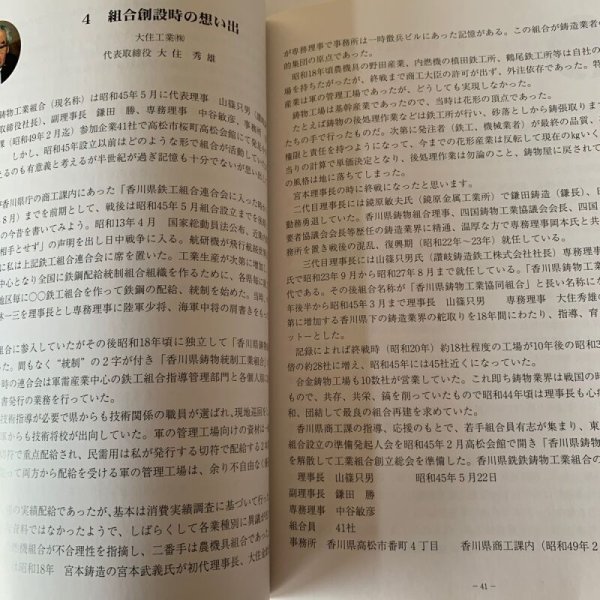 4 組合創設時の想い出
大住工業㈱
代表取締役 大住 秀雄
鋳物工業組合（現名称）は昭和45年５月に代表理事 山篠只男
取締役社長）、副理事長 鎌田 勝、専務理事 中谷敏彦、事務所
課（昭和49年２月迄）参加企業41社で高松市桜町高松会館にて
しかし、昭和45年設立以前はどのような形で組合が活動してい
るのも有意義と考えるが半世紀が過ぎ記憶も十分でないが想い出
香川県庁の商工課内にあった「香川県鉄工組合連合会に入った
８月）までを前期として、戦後は昭和45年５月組合設立までを後
の今昔を書いてみよう。昭和13年４月 国家総動員法公布、近衛
相手とせず」の声明を出し日中戦争に入る。航研機が飛行航続
に私は上記鉄工組合連合会に席を置いた。工業生産が次第に増加し
中心となり全国に鉄鋼配給統制組合組織を作るために、各県毎に
地区毎に〇〇鉄工組合を作って鉄鋼の配給、統制を始めた。当時
一三を理事長とし専務理事に陸軍少将、海軍中将の肩書きをもっ
組合に参入していたがその後昭和18年頃に独立して「香川県
た。間もなく“統制”の２字が付き「香川県鋳物統制工業組合
時の連合会は軍需産業中心の鉄工組合指導管理部門と各個人
書発行の業務を行っていた。
技術指導が必要で県からも技術関係の職員が選ばれ、現地巡回を
からも技術将校が出向していた。軍の管理工場向けの資材は
切符で重点配給され、民需用は私が発行する切符で配給する２本
って両方から配給を受ける軍の管理工場は、余り不自由なく
の実績配給であったが、基本は消費実績調査に基づいて行
資料ではなかったようで、しばらくして各業種別に異議が
燃機組合が不合理性を指摘し、二番手は農機具組合であった
昭和18年 宮本鋳造の宮本武義氏が初代理事長、大住
が専務理事で事務所は一時徴兵ビルにあった記憶がある。この組合が鋳造業者の
的集団の原点であった。
昭和18年頃農機具の野田産業、内燃機の槙田鉄工所、鶴尾鉄工所等は自社の
場を持ちたがったが、終戦まで商工大臣の許可が出ず、外注依存であった。特
産業は軍の管理工場であったが、どうしても実現しなかった。
鋳物工場は基幹産業であったので、当時は花形の頂点であった。
たとえば鋳物の後処理作業などは鉄工所が行い、砂落としから鋳張取りまで
たもの手で行ったものだ。次第に発注者（鉄工、機械業者）が最終の品質、
権限と責任を持つようになって、今までの花形産業は反転して現在のkgい
当りの計算で単価決定となり、後処理作業は勿論のこと、鋳物屋に戻され
の風格は地に落ちてしまった。
宮本理事長の時に終戦になったと思います。
二代目理事長には鏡原敏夫氏（鏡原金属工業所）で鎌田鋳造（鎌長）、日
勤務勇退していた。香川県鋳物組合理事、四国鋳物工業協議会会長、四国
要者協議会会長等歴任の鋳造業界に精通、温厚な方で専務理事岡本氏と共
務所を置き戦後の混乱、復興期（昭和22年～23年）就任している。
三代目理事長には山篠只男氏（讃岐鋳造鉄工株式会社社長）専務理事
氏で昭和23年９月から昭和27年８月まで就任している。「香川県鋳物工
代である。その後組合名称が「香川県鋳物工業協同組合」と長い名称にな
年後半から昭和45年３月まで理事長 山篠只男 専務理事 大住秀雄
第に増加する香川県下の鋳造業界の舵取りを18年間にわたり、指導、育
ットーとした。
記録によれば終戦時（昭和20年）約18社程度の工場が10年後の昭和3
倍の約28社に増え、昭和45年には45社近くになっていた。
合金鋳物工場も10数社が営業していた。これ即ち鋳物業界は戦国の時
もので、共存、共栄、鎬を削っていたもので昭和44年頃は理事長も心
和、団結して最良の組合再建を求めていた。
香川県商工課の指導、応援のもとで、若手組合員有志が集まり、東
組合設立の準備発起人会を昭和45年２月高松会館で開き「香川県鋳物
を解散して工業組合創立総会を準備した。香川県銑鉄鋳物工業組合
理事長 山篠只男 昭和45年５月22日
副理事長 鎌田 勝
専務理事 中谷敏彦
組合員 41社
事務所 香川県高松市番町４丁目 香川県商工課内（昭和49年２
－41－